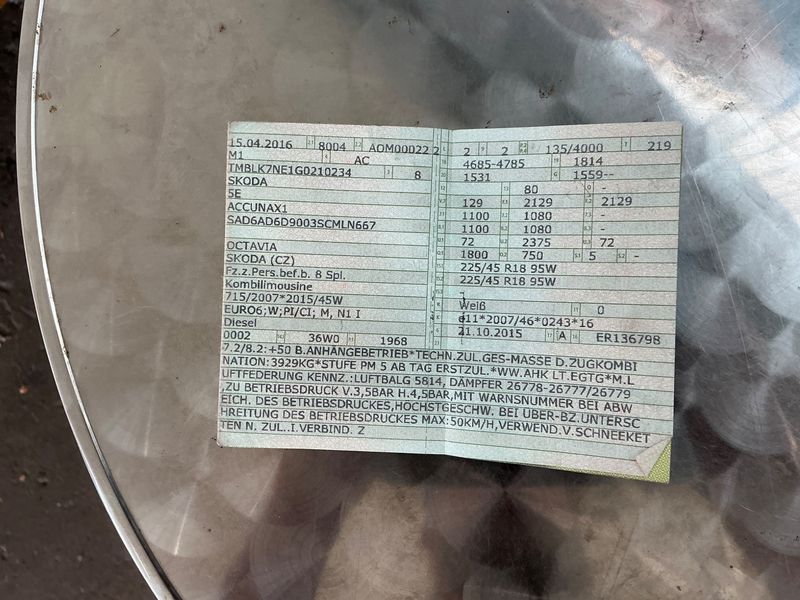 15.04.2016 8004 AOM00022 2
M1 AC
TMBLK7NE1G0210234 8
SKODA
5E
ACCUNAX1
SAD6AD6D9003SCMLN667
OCTAVIA
SKODA (CZ)
Fz.z.Pers.bef.b. 8 Spl.
Kombilimousine
715/2007*2015/45W
EURO6;W;PI/CI; M, N1 I
Diesel
0002 36W0 1968
2 2 135/4000 219
4685-4785 1814
1531 1559--
80 -
129 2129 2129
1100 1080 -
1100 1080 -
72 2375 72
1800 750 5 -
225/45 R18 95W
225/45 R18 95W
-
Weiß 0
e11*2007/46*0243*16
21.10.2015 A ER136798
7.2/8.2:+50 B.ANHÄNGEBETRIEB*TECHN.ZUL.GES-MASSE D.ZUGKOMBI
NATION:3929KG*STUFE PM 5 AB TAG ERSTZUL.*WW.AHK LT.EGTG*M.L
UFTFEDERUNG KENNZ.:LUFTBALG 5814, DÄMPFER 26778-26777/26779
,ZU BETRIEBSDRUCK V.3,5BAR H.4,5BAR,MIT WARNSUMMER BEI ABW
EICH. DES BETRIEBSDRUCKES,HÖCHSTGESCHW. BEI ÜBER-BZ.UNTERSC
HREITUNG DES BETRIEBSDRUCKES MAX:50KM/H,VERWEND.V.SCHNEEKET
TEN N. ZUL..I.VERBIND. Z